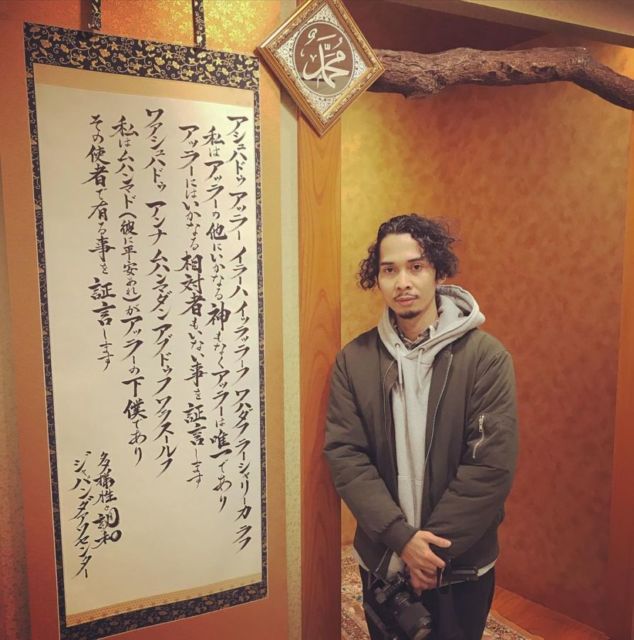 محمد
アシュハドゥ アッラー イラーハ イッラッラーフ ワハダフ ラーシャリーカ ラフ
私はアッラーの他にいかなる神もなくアッラーは唯一であり
アッラーにはいかなる相対者もいない事を証言します
ワアシュハドゥ アンナ ムハンマダン アブドゥフ ワラスールフ
私はムハンマド(彼に平安あれ)がアッラーの下僕であり
その使者で有る事を証言します
多様性の調和
ジャパンダアワセンター